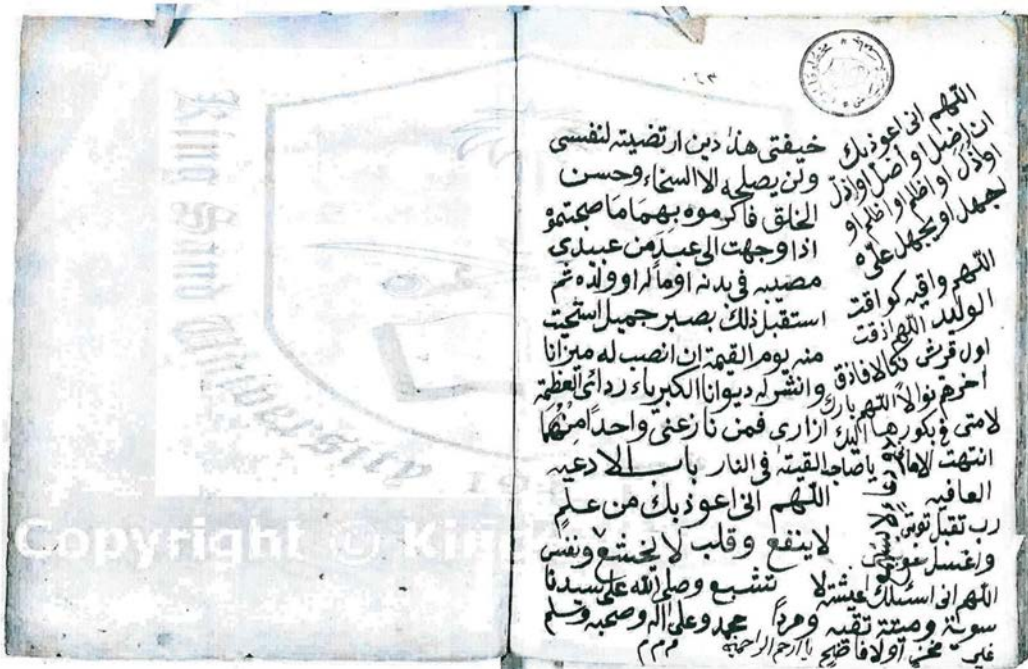 ٢٣
خيفتى هذا دين ارتضيته لنفسى
ولن يصلحه الا السخاء وحسن
الخلق فاكرموه بهما ما صحبتموه
اذا وجهت الى عبد من عبيدى
مصيبه فى بدنه او ماله او ولده ثم
استقبل ذلك بصبر جميل استحيت
منه يوم القيمة ان انصب له ميزانا
وانشر له ديوانا الكبرياء ردائى والعظمة
ازارى فمن نازعنى واحدا منهما
القيته فى النار باب الادعيه
اللهم انى اعوذ بك من علم
لا ينفع وقلب لا يخشع ونفس
لا تشبع وصلى الله على سيدنا
محمد وعلى اله وصحبه وسلم
م م م
اللهم انى اعوذ بك
ان اضل او اضل او اذل
او اذل او اظلم او اظلم او
اجهل او يجهل على
اللهم واقيه كواقيت
الوليد اللهم اذقت
اول قريش نكالا فاذق
اخرهم نوالا اللهم بارك
لامتى فى بكورها اليك
انتهت الامانى يا صاحب
العافيه
رب تقبل توبتى
واغسل حوبتى
اللهم انى اسئلك عيشة
سوية وميتة تقيه ومردا
غير مخزى ولا فاضح يا ارحم الراحمين
King Saud University
19
Copyright © King